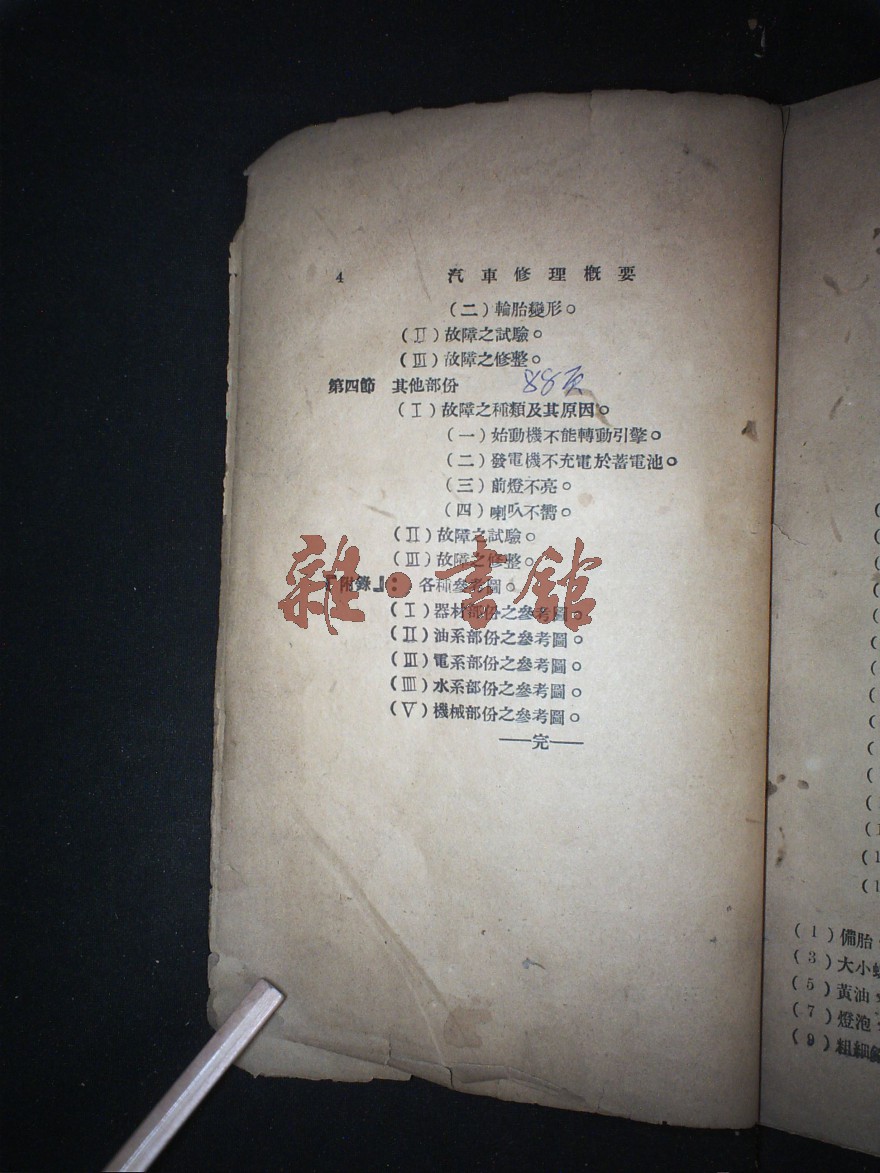 4 汽車修理概要
(二)輪胎變形。
(Ⅱ)故障之試驗。
(Ⅲ)故障之修整。
第四節 其他部份 88頁
(Ⅰ)故障之種類及其原因。
(一)始動機不能轉動引擎。
(二)發電機不充電於蓄電池。
(三)前燈不亮。
(四)喇叭不嚮。
(Ⅱ)故障之試驗。
(Ⅲ)故障之修整。
『附錄』: 各種參考圖。
(Ⅰ)器材部份之參考圖。
(Ⅱ)油系部份之參考圖。
(Ⅲ)電系部份之參考圖。
(IIII)水系部份之參考圖。
(Ⅴ)機械部份之參考圖。
——完——
雜·書館
(1)備胎
(3)大小
(5)黃油
(7)燈泡
(9)粗細